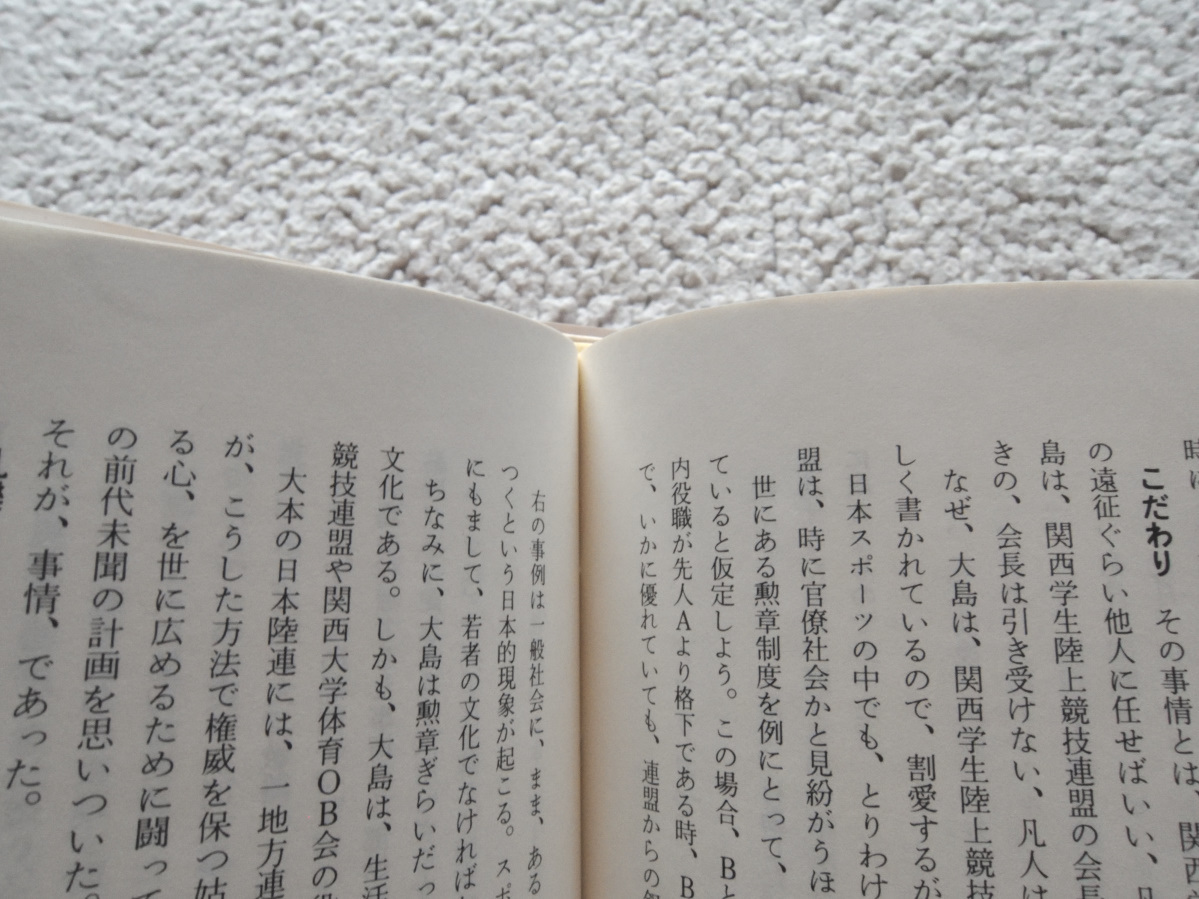 時
こだわり　その事情とは、関西
の遠征ぐらい他人に任せばいい、
島は、関西学生陸上競技連盟の会長
きの、会長は引き受けない、凡人は
なぜ、大島は、関西学生陸上競技
しく書かれているので、割愛するが
日本スポーツの中でも、とりわけ
盟は、時に官僚社会かと見紛がうほ
世にある勲章制度を例にとって、
ていると仮定しよう。この場合、Bと
内役職が先人Aより格下である時、B
で、いかに優れていても、連盟からの
右の事例は一般社会に、まま、ある
つくという日本的現象が起こる。スポ
にもまして、若者の文化でなければ
ちなみに、大島は勲章ぎらいだっ
文化である。しかも、大島は、生活
競技連盟や関西大学体育OB会の
大本の日本陸連には、一地方連
が、こうした方法で権威を保つ姑
る心、を世に広めるために闘って
の前代未聞の計画を思いついた。
それが、事情、であった。